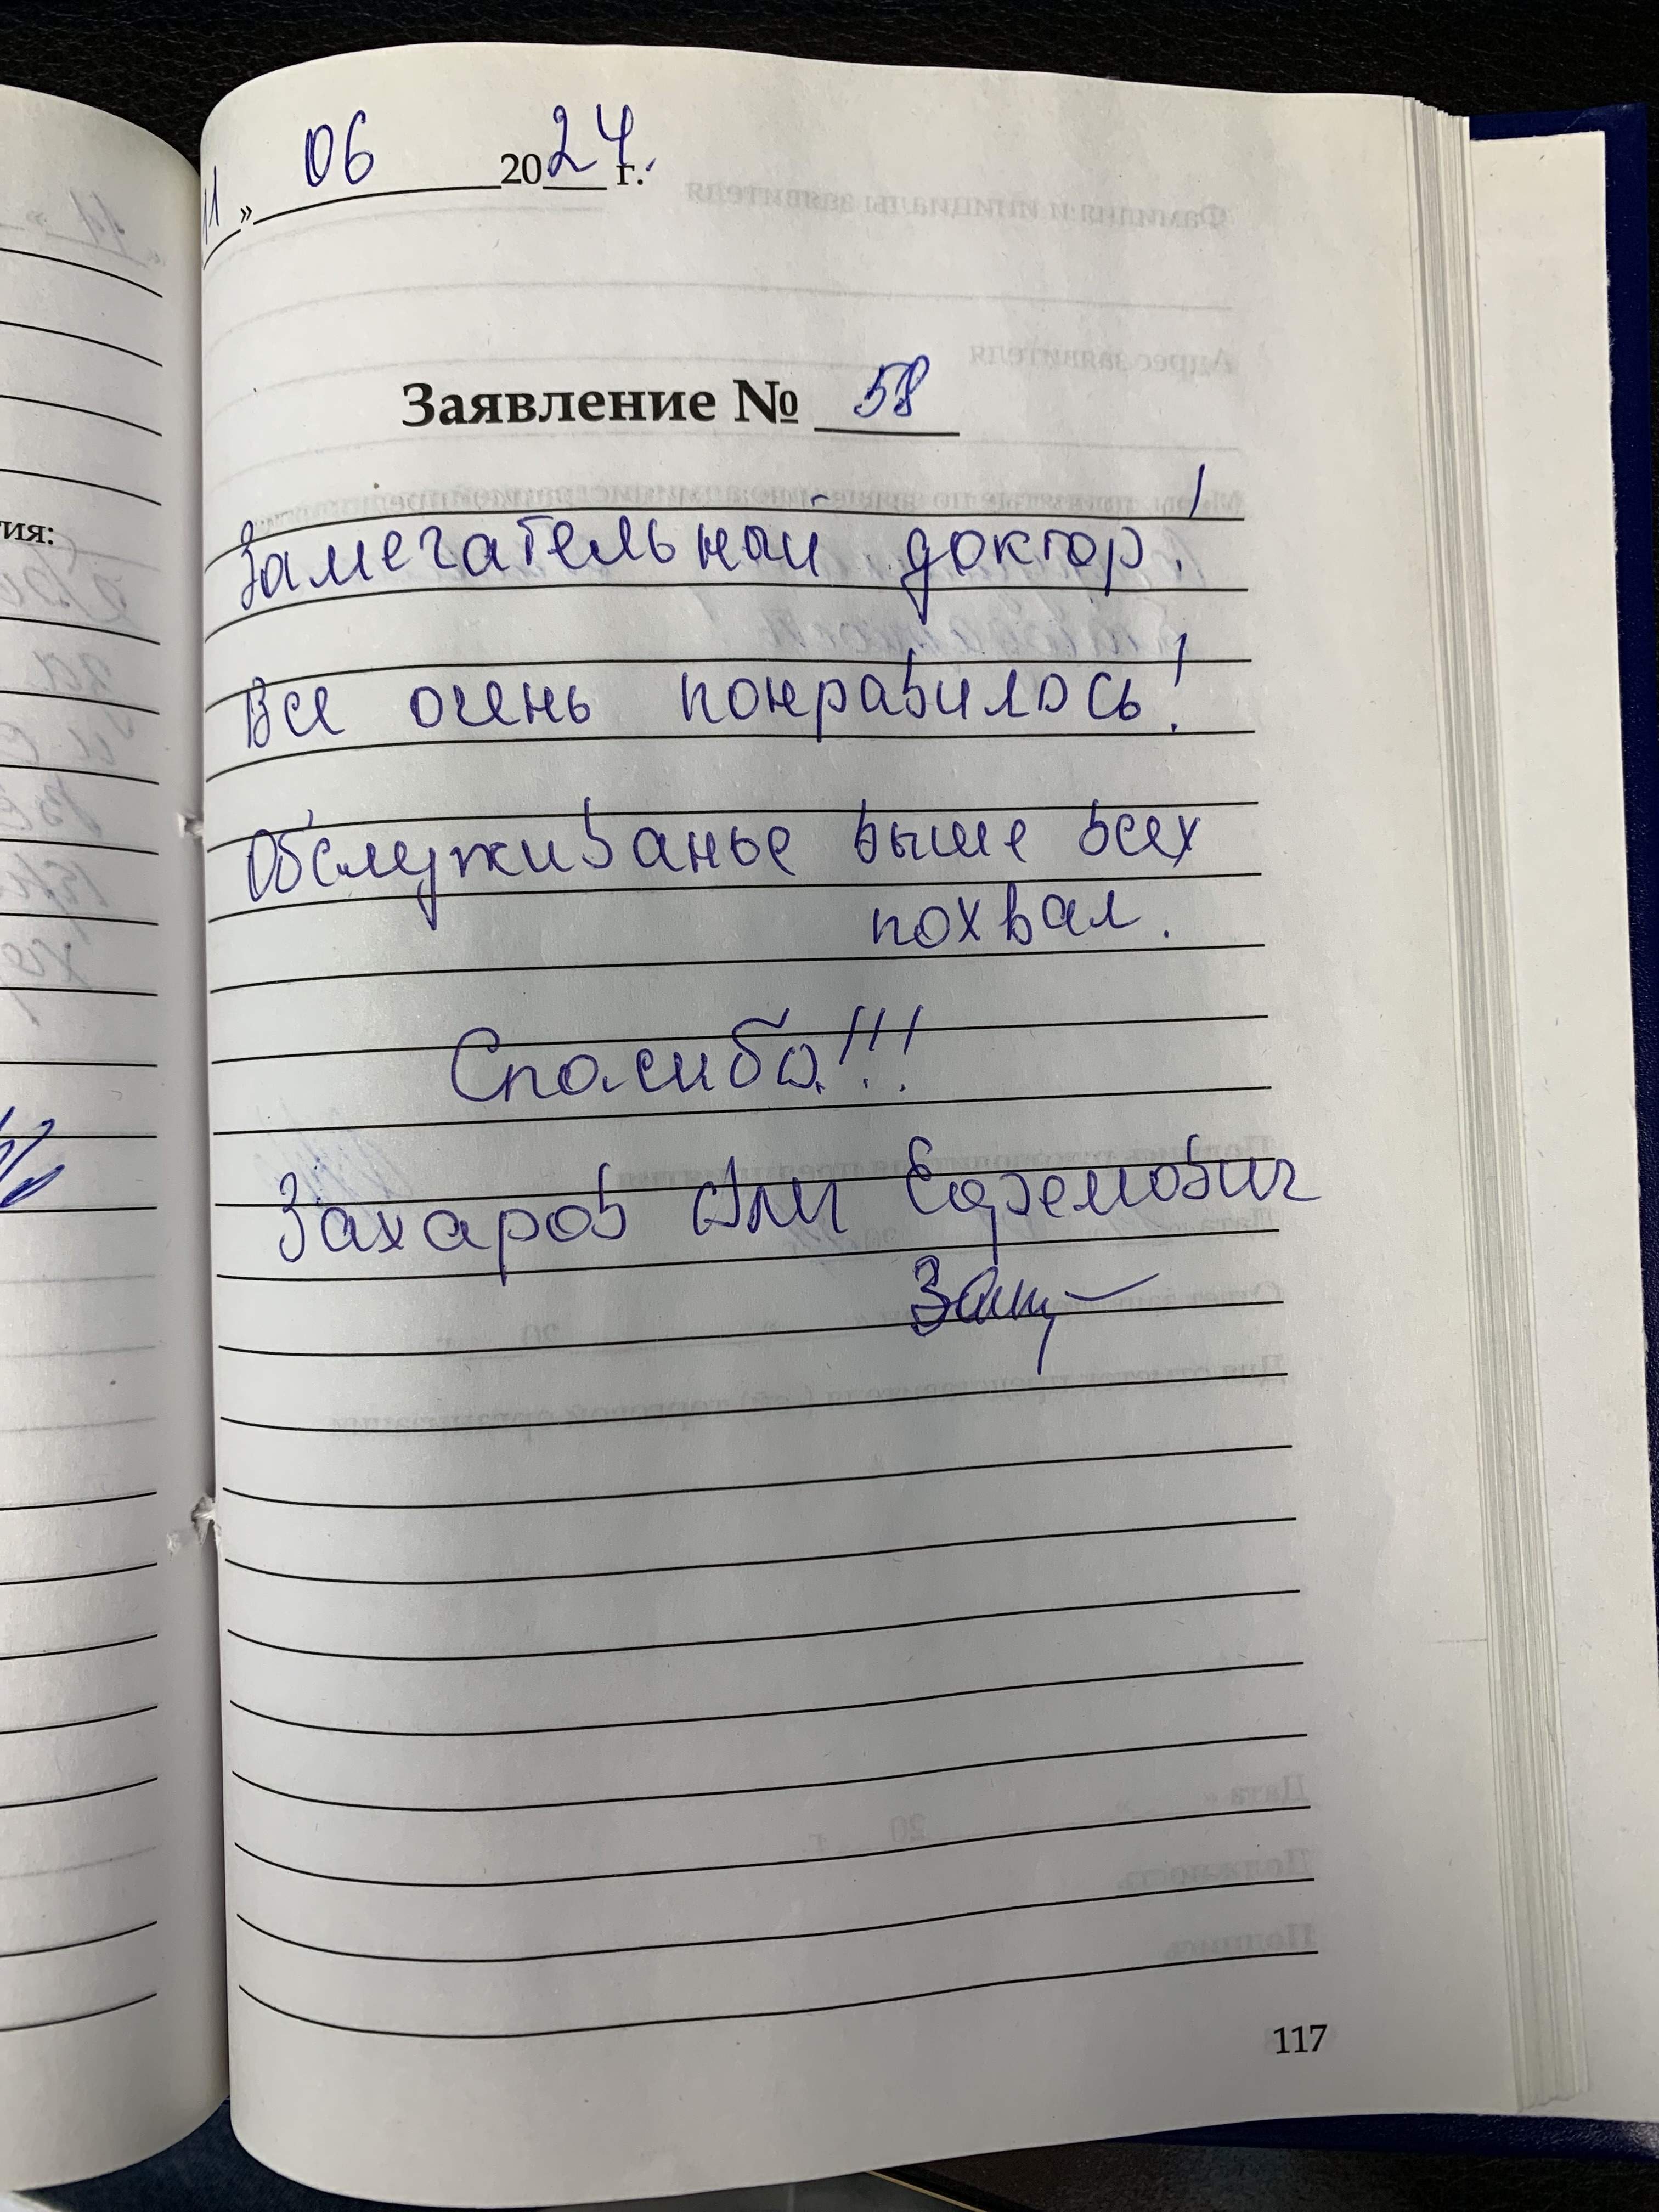 11 » 06 2024 г.
Заявление № 58
Замечательный доктор!
Все очень понравилось!
Обслуживанье выше всех
похвал.
Спасибо!!!
Захаров Ефремович
тия:
117